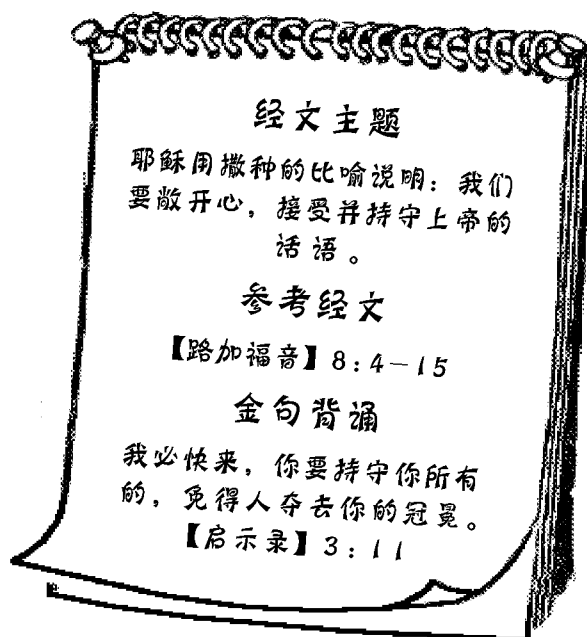 经文主题
耶稣用撒种的比喻说明：我们
要敞开心，接受并持守上帝的
话语。
参考经文
【路加福音】8：4－15
金句背诵
我必快来，你要持守你所有
的，免得人夺去你的冠冕。
【启示录】3：11